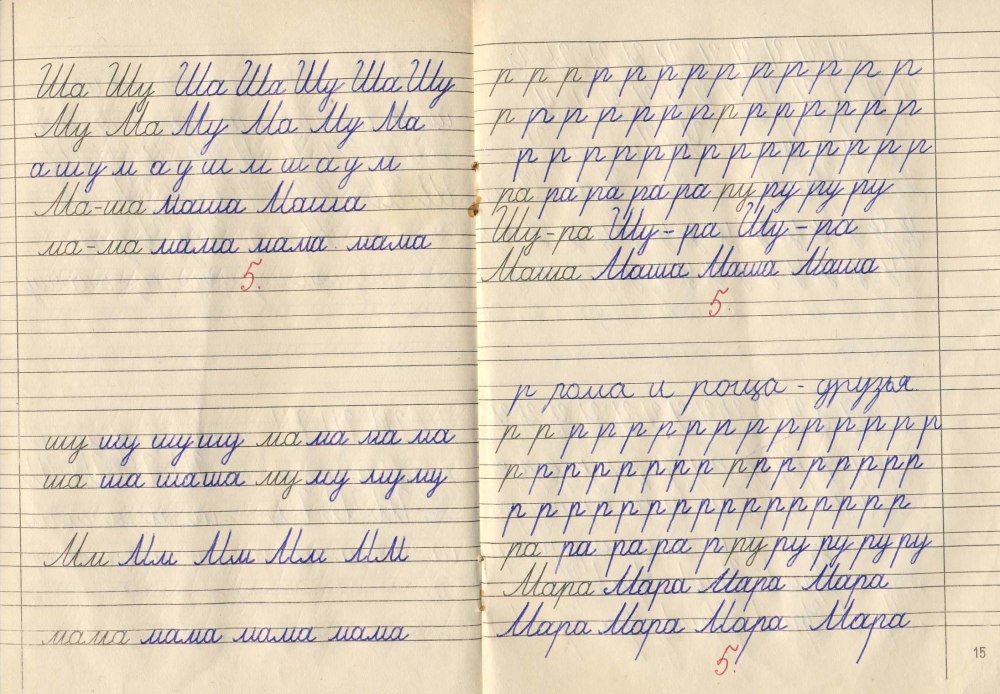 Ша Шу Ша Ша Шу Ша Шу
Му Ма Му Ма Му Ма
а ш у м а у ш м ш а у м
Ма-ша маша Маша
ма-ма мама мама мама
5.
шу шу шу шу ма ма ма ма
ша ша ша ша му му му му
Мм Мм Мм Мм ММ
мама мама мама мама
р р р р р р р р р р р р р р
р р р р р р р р р р р р р р р р
р р р р р р р р р р р р р р р
ра ра ра ра ра ру ру ру ру
Шу-ра Шу-ра Шу-ра
Маша Маша Маша Маша
5.
р рома и роща - друзья.
р р р р р р р р р р р р р р р
р р р р р р р р р р р р р р р р
р р р р р р р р р р р р р р р р
ра ра ра ра р ру ру ру ру ру
Мара Мара Мара Мара
Мара Мара Мара Мара
5.
15